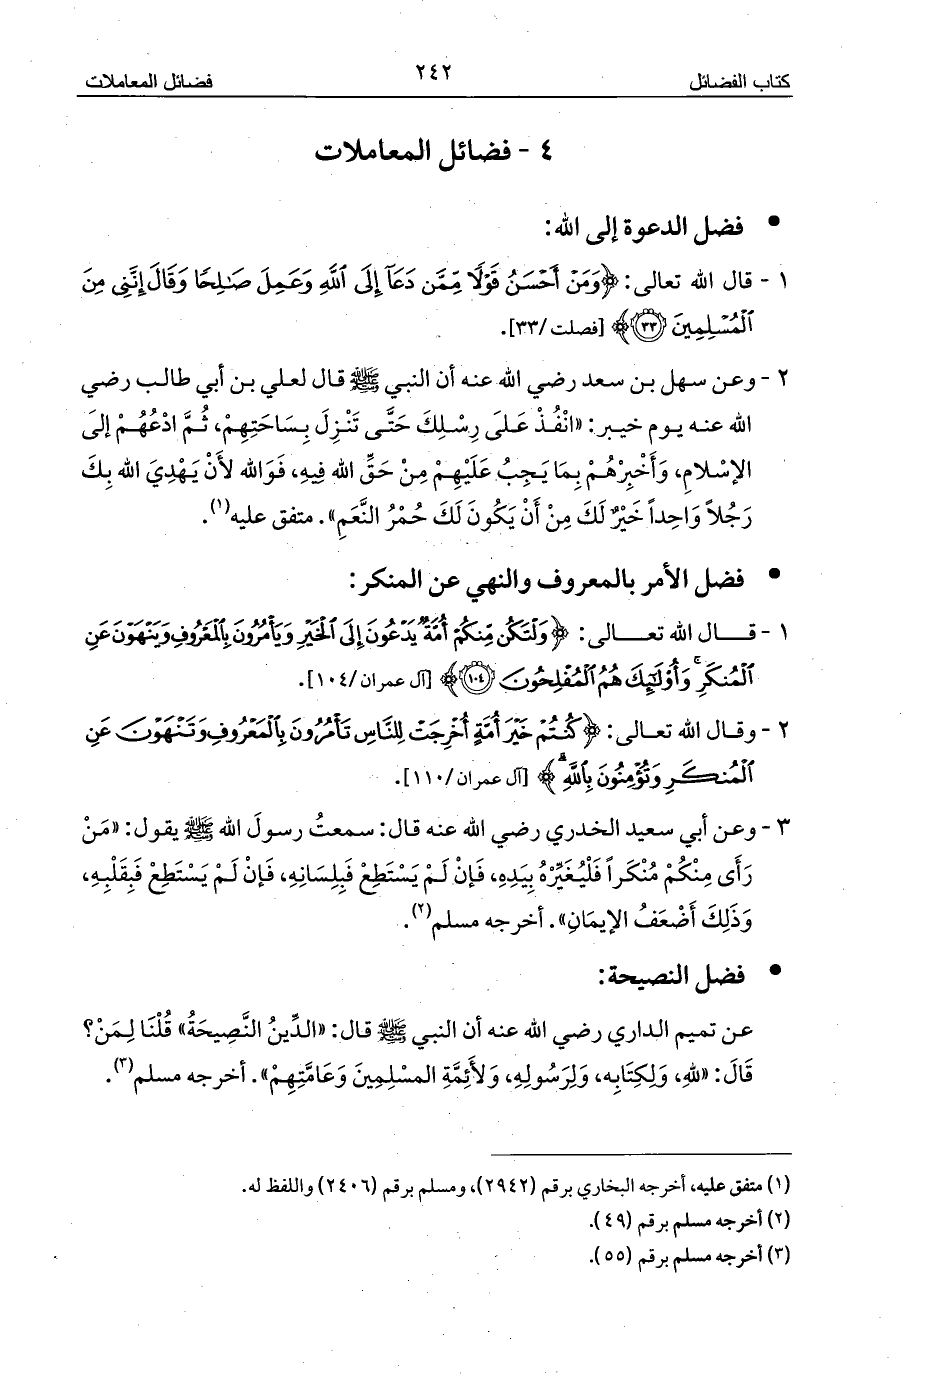 كتاب الفضائل ٢٤٢ فضائل المعاملات
٤ - فضائل المعاملات
• فضل الدعوة إلى الله:
١ - قال الله تعالى: ﴿وَمَنْ أَحْسَنُ قَوْلًا مِّمَّن دَعَآ إِلَى ٱللَّهِ وَعَمِلَ صَٰلِحًا وَقَالَ إِنَّنِى مِنَ
ٱلْمُسْلِمِينَ ٣٣﴾ [فصلت/٣٣].
٢ - وعن سهل بن سعد رضي الله عنه أن النبي ﷺ قال لعلي بن أبي طالب رضي
الله عنه يوم خيبر: «انْفُذْ عَلَى رِسْلِكَ حَتَّى تَنْزِلَ بِسَاحَتِهِمْ، ثُمَّ ادْعُهُمْ إلَى
الإسْلامِ، وَأَخْبِرْهُمْ بِمَا يَجِبُ عَلَيْهِمْ مِنْ حَقِّ الله فِيهِ، فَوَالله لأَنْ يَهْدِيَ الله بِكَ
رَجُلاً وَاحِداً خَيْرٌ لَكَ مِنْ أَنْ يَكُونَ لَكَ حُمْرُ النَّعَمِ». متفق عليه(١).
• فضل الأمر بالمعروف والنهي عن المنكر:
١ - قـــال الله تعـــالى: ﴿وَلْتَكُن مِّنكُمْ أُمَّةٌ يَدْعُونَ إِلَى ٱلْخَيْرِ وَيَأْمُرُونَ بِٱلْمَعْرُوفِ وَيَنْهَوْنَ عَنِ
ٱلْمُنكَرِ ۚ وَأُو۟لَٰٓئِكَ هُمُ ٱلْمُفْلِحُونَ ١٠٤﴾ [آل عمران/١٠٤].
٢ - وقال الله تعالى: ﴿كُنتُمْ خَيْرَ أُمَّةٍ أُخْرِجَتْ لِلنَّاسِ تَأْمُرُونَ بِٱلْمَعْرُوفِ وَتَنْهَوْنَ عَنِ
ٱلْمُنكَرِ وَتُؤْمِنُونَ بِٱللَّهِ ۗ﴾ [آل عمران/١١٠].
٣ - وعن أبي سعيد الخدري رضي الله عنه قال: سمعتُ رسولَ الله ﷺ يقول: «مَنْ
رَأَى مِنْكُمْ مُنْكَراً فَلْيُغَيِّرْهُ بِيَدِهِ، فَإنْ لَمْ يَسْتَطِعْ فَبِلِسَانِهِ، فَإنْ لَمْ يَسْتَطِعْ فَبِقَلْبِهِ،
وَذَلِكَ أَضْعَفُ الإيمَانِ». أخرجه مسلم(٢).
• فضل النصيحة:
عن تميم الداري رضي الله عنه أن النبي ﷺ قال: «الدِّينُ النَّصِيحَةُ» قُلْنَا لِمَنْ؟
قَالَ: «للهِ، وَلِكِتَابِه، وَلِرَسُولِهِ، وَلأَئِمَّةِ المسْلِمِينَ وَعَامَّتِهِمْ». أخرجه مسلم(٣).
(١) متفق عليه، أخرجه البخاري برقم (٢٩٤٢)، ومسلم برقم (٢٤٠٦) واللفظ له.
(٢) أخرجه مسلم برقم (٤٩).
(٣) أخرجه مسلم برقم (٥٥).